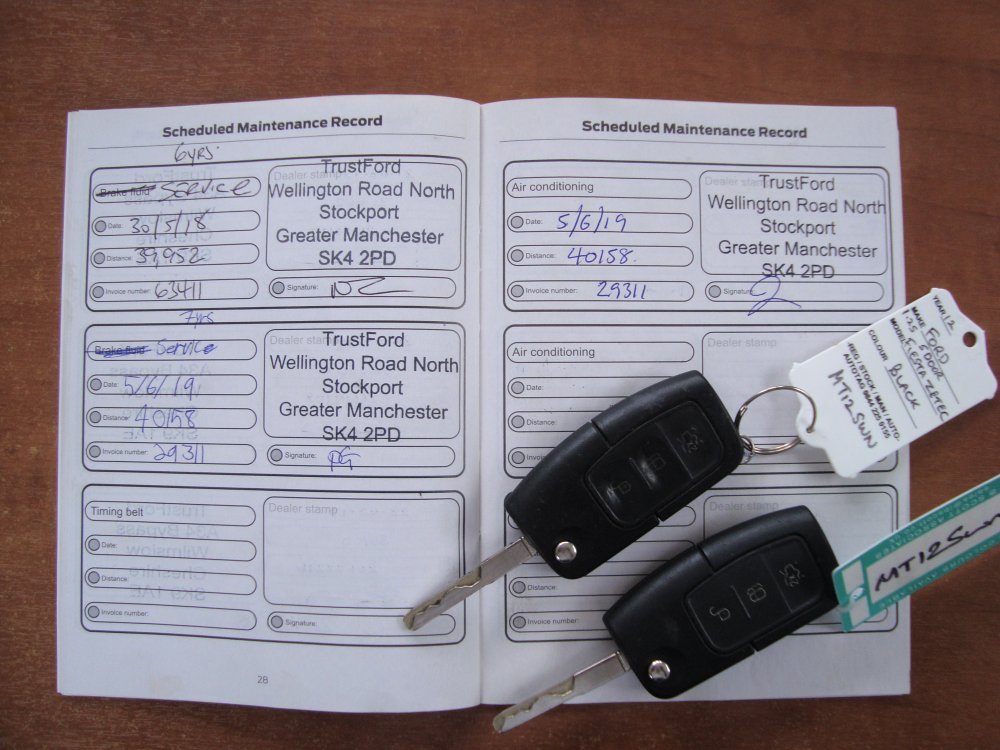 Scheduled Maintenance Record
6yrs.
Brake fluid Service
Date: 30/5/18
Distance: 39,952
Invoice number: 63411
Dealer stamp
TrustFord
Wellington Road North
Stockport
Greater Manchester
SK4 2PD
Signature:
7yrs
Brake fluid Service
Date: 5/6/19
Distance: 40158
Invoice number: 29311
Dealer stamp
TrustFord
Wellington Road North
Stockport
Greater Manchester
SK4 2PD
Signature:
Timing belt
Date:
Distance:
Invoice number:
Dealer stamp
Signature:
28
Scheduled Maintenance Record
Air conditioning
Date: 5/6/19
Distance: 40158.
Invoice number: 29311
Dealer stamp
TrustFord
Wellington Road North
Stockport
Greater Manchester
SK4 2PD
Signature
Air conditioning
Date:
Distance:
Invoice
Dealer stamp
Distance:
Invoice number:
YEAR 12
MAKE FORD
1.25 5 DOOR
MODEL FIESTA ZETEC
COLOUR BLACK
REG / STOCK / MAN / AUTO-
MT12SWN
AUTOTAG 0844 225 9155
MT12SWN